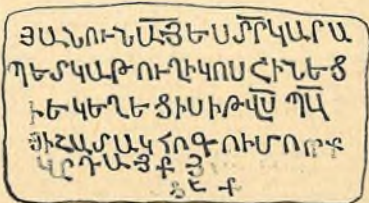 ՅԱՆՈՒՆԱ̅ՅԵՍՄ̅ՐԿԱՐԱ
ՊԵՏԿԱԹՈՒՂԻԿՈՍՇԻՆԵՑ
ԻԵԿԵՂԵՑԻՍԻԹՎ̅Ս ՊԱ̅
ՅԻՇԱՏԱԿՀՈԳՈՒՄՈՐՔ
ԿԸԴԱՅՔ Յ